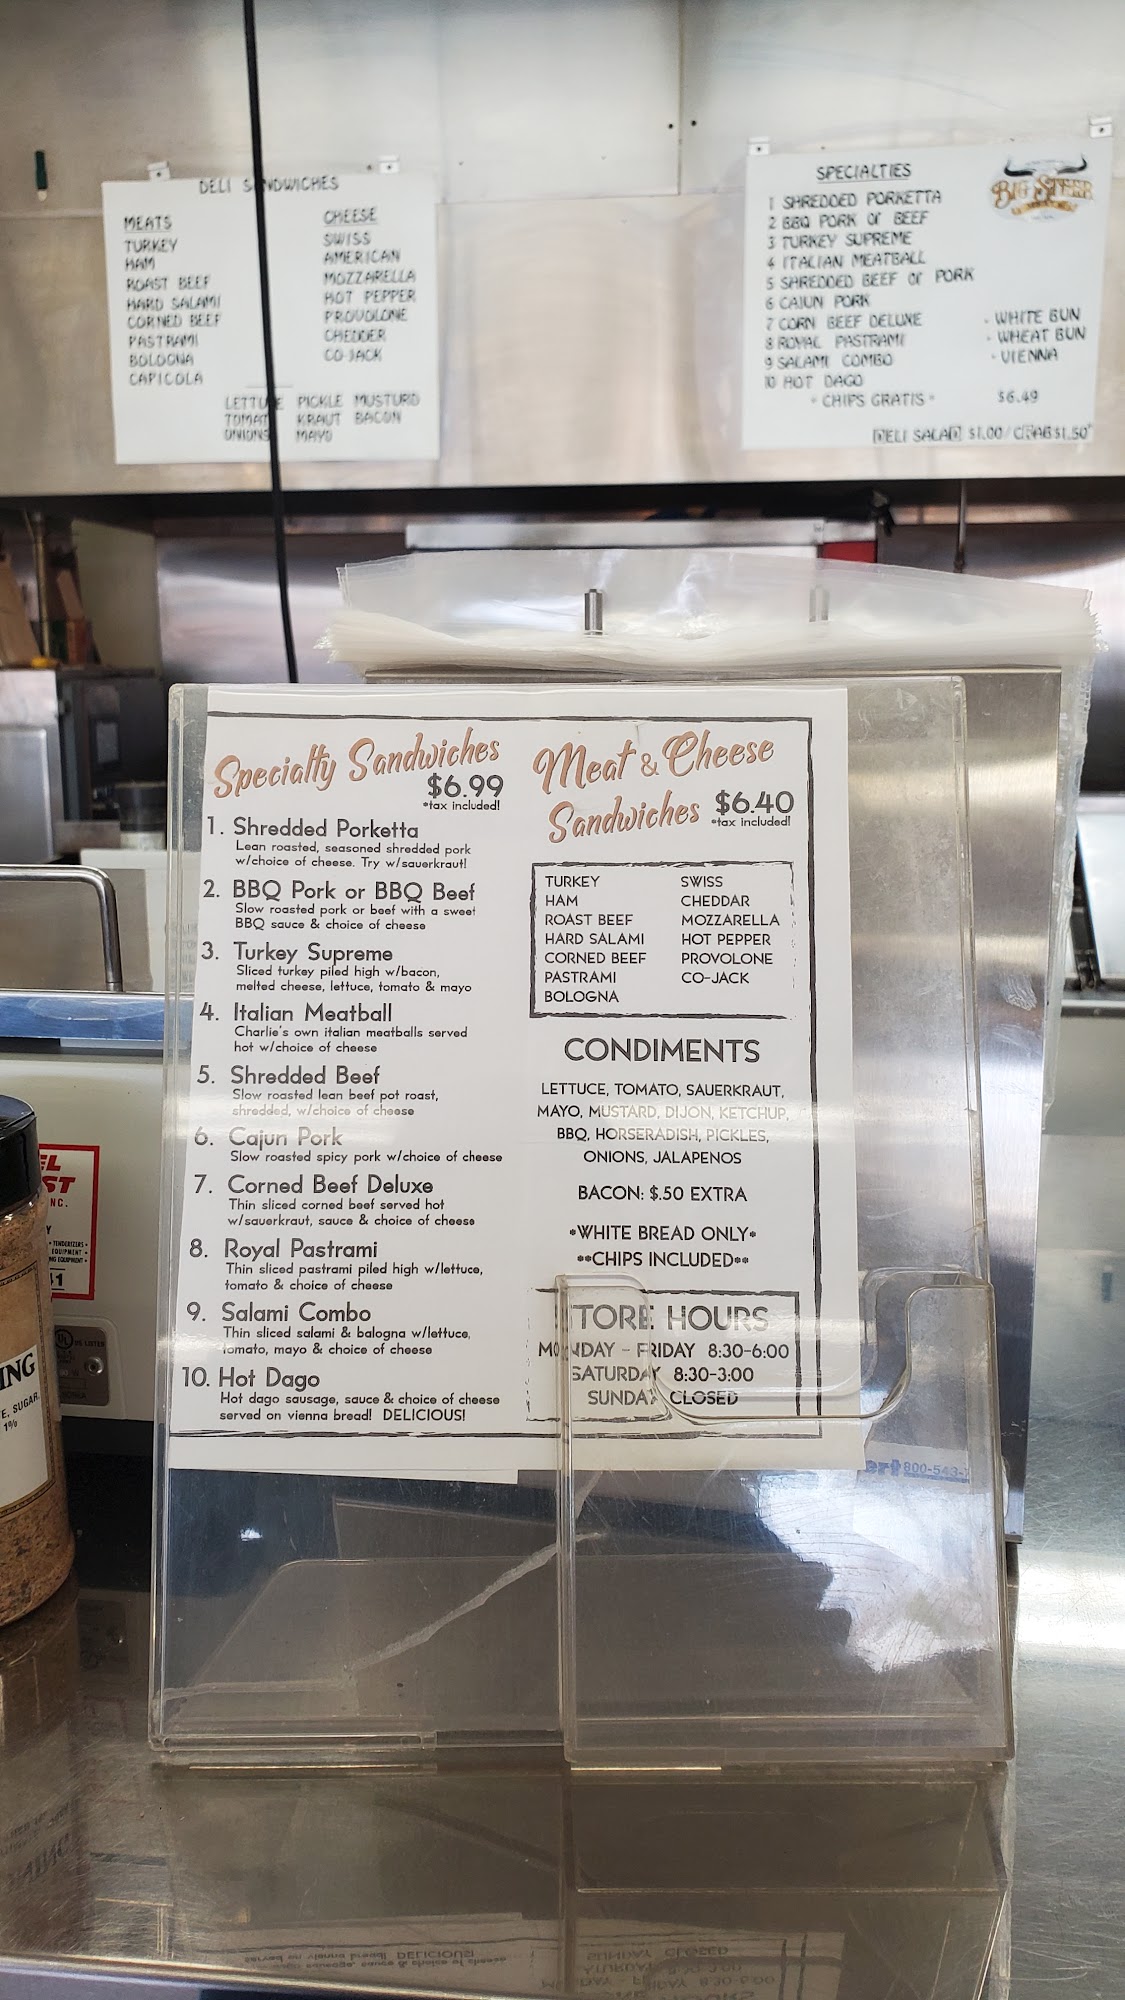 DELI SANDWICHES
MEATS
TURKEY
HAM
ROAST BEEF
HARD SALAMI
CORNED BEEF
PASTRAMI
BOLOGNA
CAPICOLA
CHEESE
SWISS
AMERICAN
MOZZARELLA
HOT PEPPER
PROVOLONE
CHEDDER
CO-JACK
LETTUCE PICKLE MUSTURD
TOMATO KRAUT BACON
ONIONS MAYO
SPECIALTIES
1 SHREDDED PORKETTA
2 BBQ PORK or BEEF
3 TURKEY SUPREME
4 ITALIAN MEATBALL
5 SHREDDED BEEF or PORK
6 CAJUN PORK
7 CORN BEEF DELUXE
8 ROYAL PASTRAMI
9 SALAMI COMBO
10 HOT DAGO
* CHIPS GRATIS *
BIG STEER
- WHITE BUN
- WHEAT BUN
- VIENNA
$6.49
DELI SALAD $1.00/ CRAB $1.50
Specialty Sandwiches
$6.99
*tax included!
1. Shredded Porketta
Lean roasted, seasoned shredded pork
w/choice of cheese. Try w/sauerkraut!
2. BBQ Pork or BBQ Beef
Slow roasted pork or beef with a sweet
BBQ sauce & choice of cheese
3. Turkey Supreme
Sliced turkey piled high w/bacon,
melted cheese, lettuce, tomato & mayo
4. Italian Meatball
Charlie's own italian meatballs served
hot w/choice of cheese
5. Shredded Beef
Slow roasted lean beef pot roast,
shredded, w/choice of cheese
6. Cajun Pork
Slow roasted spicy pork w/choice of cheese
7. Corned Beef Deluxe
Thin sliced corned beef served hot
w/sauerkraut, sauce & choice of cheese
8. Royal Pastrami
Thin sliced pastrami piled high w/lettuce,
tomato & choice of cheese
9. Salami Combo
Thin sliced salami & balogna w/lettuce,
tomato, mayo & choice of cheese
10. Hot Dago
Hot dago sausage, sauce & choice of cheese
served on vienna bread! DELICIOUS!
Meat & Cheese
Sandwiches $6.40
*tax included!
TURKEY
HAM
ROAST BEEF
HARD SALAMI
CORNED BEEF
PASTRAMI
BOLOGNA
SWISS
CHEDDAR
MOZZARELLA
HOT PEPPER
PROVOLONE
CO-JACK
CONDIMENTS
LETTUCE, TOMATO, SAUERKRAUT,
MAYO, MUSTARD, DIJON, KETCHUP,
BBQ, HORSERADISH, PICKLES,
ONIONS, JALAPENOS
BACON: $.50 EXTRA
*WHITE BREAD ONLY*
**CHIPS INCLUDED**
STORE HOURS
MONDAY - FRIDAY 8:30-6:00
SATURDAY 8:30-3:00
SUNDAY CLOSED
800-543-
EL
ST
NC.
Y
• TENDERIZERS •
EQUIPMENT •
NG EQUIPMENT •
1
UL
US LISTED
ING
E, SUGAR,
1%